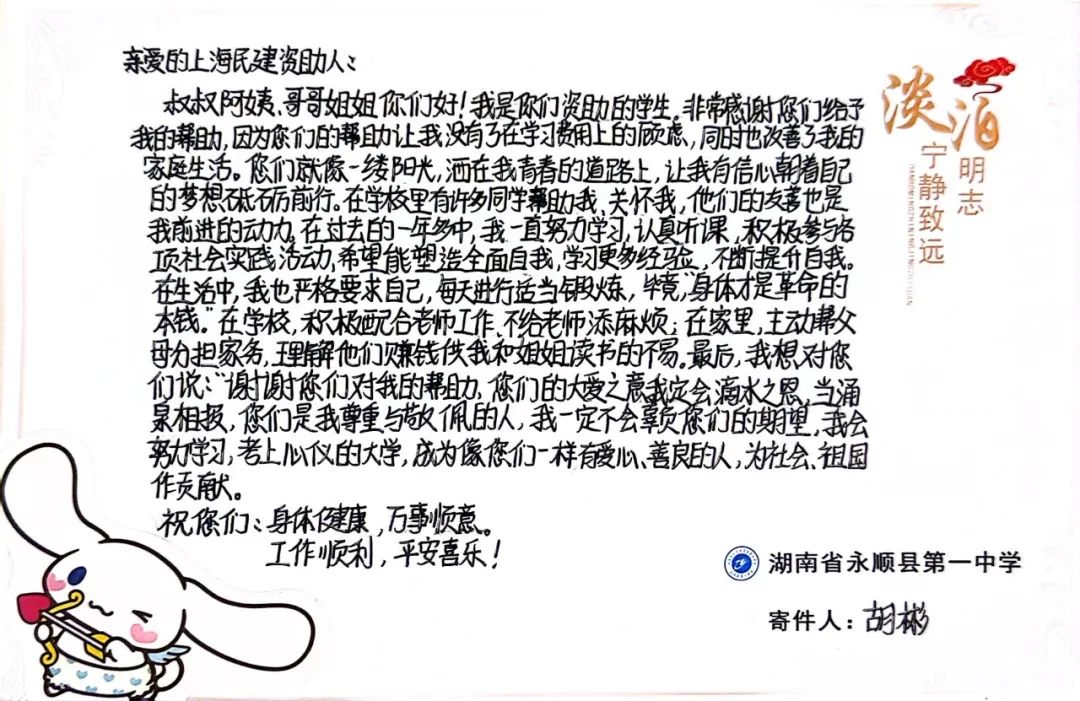 亲爱的上海民建资助人：
叔叔阿姨、哥哥姐姐你们好！我是你们资助的学生。非常感谢您们给予
我的帮助，因为您们的帮助让我没有了在学习费用上的顾虑，同时也改善了我的
家庭生活。您们就像一缕阳光，洒在我青春的道路上，让我有信心朝着自己
的梦想砥砺前行。在学校里有许多同学帮助我、关怀我，他们的友善也是
我前进的动力。在过去的一年多中，我一直努力学习，认真听课，积极参与各
项社会实践活动，希望能塑造全面自我，学习更多经验，不断提升自我。
在生活中，我也严格要求自己，每天进行适当锻炼，毕竟，“身体才是革命的
本钱。”在学校，积极配合老师工作、不给老师添麻烦；在家里，主动帮父
母分担家务，理解他们赚钱供我和姐姐读书的不易。最后，我想对您
们说：“谢谢您们对我的帮助，您们的大爱之意我定会滴水之恩，当涌
泉相报，您们是我尊重与敬佩的人，我一定不会辜负您们的期望，我会
努力学习，考上心仪的大学，成为像您们一样有爱心、善良的人，为社会、祖国
作贡献。
祝您们：身体健康，万事顺意。
工作顺利，平安喜乐！
淡泊
明志
宁静致远
湖南省永顺县第一中学
寄件人：胡彬